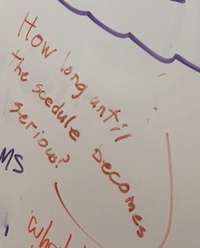 How long until
the scedule becomes
serious?
MS
who